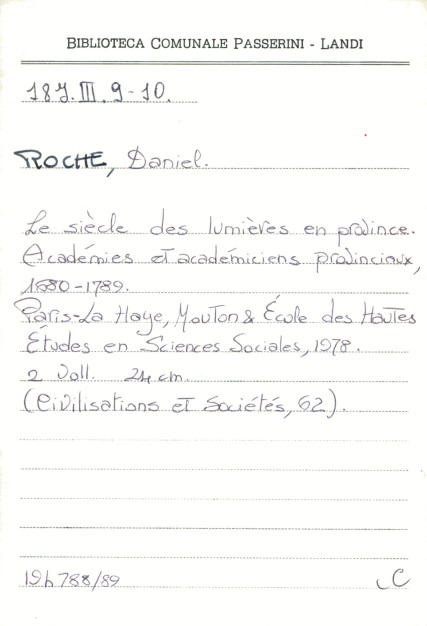 BIBLIOTECA COMUNALE PASSERINI - LANDI
187.III.9-10.
ROCHE, Daniel.
Le siècle des lumières en province.
Académies et académiciens provinciaux,
1680-1789.
Paris-La Haye, Mouton & École des Hautes
Études en Sciences Sociales, 1978.
2 Voll. 24 cm.
(Civilisations et Sociétés, 62).
194788/89
C